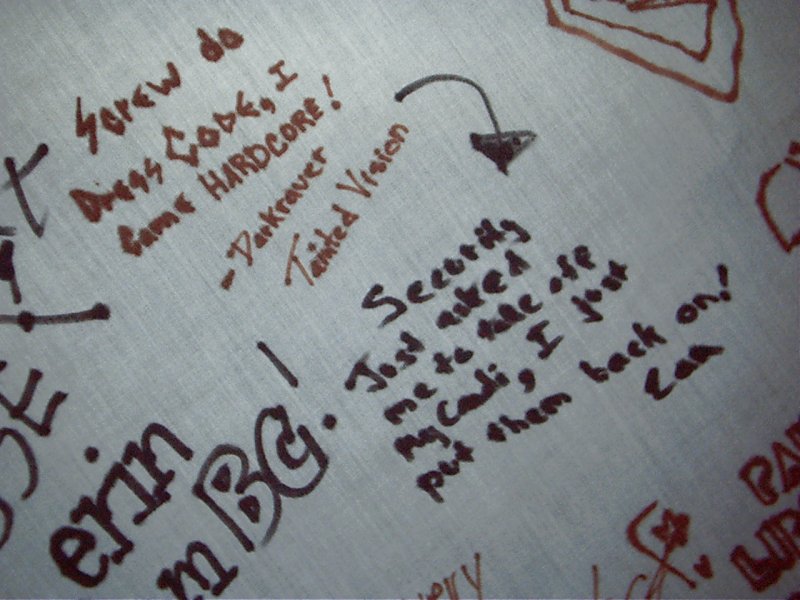 Screw do
Dress Code, I
Came HARDCORE!
- Darkraver
Tainted Vision
Security
Just asked
me to take off
my Candi, I just
put them back on!
erin
m BC!